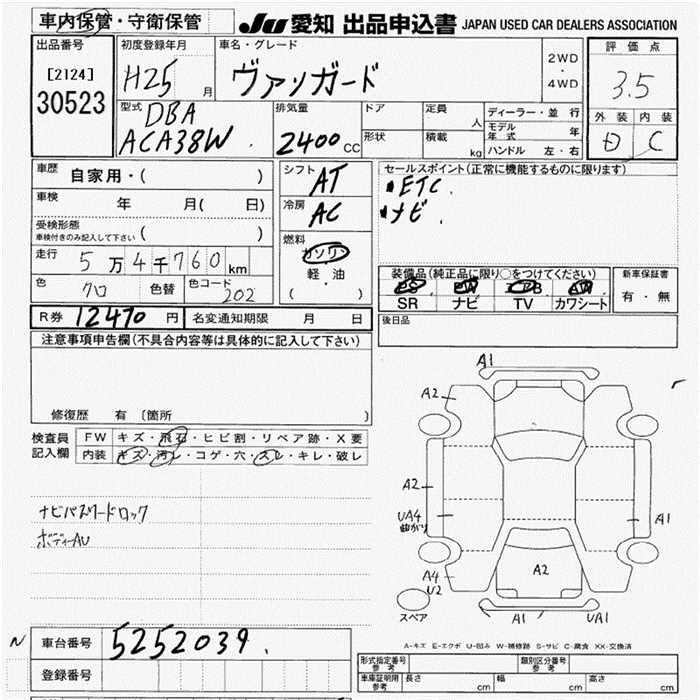 車内保管・守衛保管
JU 愛知 出品申込書 JAPAN USED CAR DEALERS ASSOCIATION
出品番号
[2124]
30523
初度登録年月
H25 月
車名・グレード
ヴァンガード
2WD
・
4WD
評価点
3.5
外装 内装
D C
型式
DBA
ACA38W
排気量
2400 CC
ドア
形状
定員 人
積載 kg
ディーラー・並行
モデル年式 年
ハンドル 左・右
車歴 自家用・( )
車検 年 月( 日)
受検形態
車検付きのみ記入して下さい ( )
走行 5万4千760 km
色 クロ 色替 色コード 202
シフト AT
冷房 AC
燃料
ガソリン
・
軽・油
( )
セールスポイント(正常に機能するものに限ります)
・ETC.
・ナビ.
装備品(純正品に限り○をつけてください)
PS PW ABS AW
SR ナビ TV カワシート
新車保証書
有・無
R券 12470 円 名変通知期限 月 日
後日品
注意事項申告欄(不具合内容等は具体的に記入して下さい)
修復歴 有 [箇所 ]
検査員記入欄
FW キズ・飛石・ヒビ割・リペア跡・X要
内装 キズ・汚レ・コゲ・穴・スレ・キレ・破レ
ナビパスワードロック
ボディーAU
A1
A2
A2
UA4
曲がり
A1
A4
U2
A2
スペア
A1
UA1
A-キズ E-エクボ U-凹み W-補修跡 S-サビ C-腐食 XX-交換済
N 車台番号 5252039
登録番号
形式指定番号 参考 類別区分番号 参考
車庫証明用 参考 長さ cm 幅 cm 高さ cm